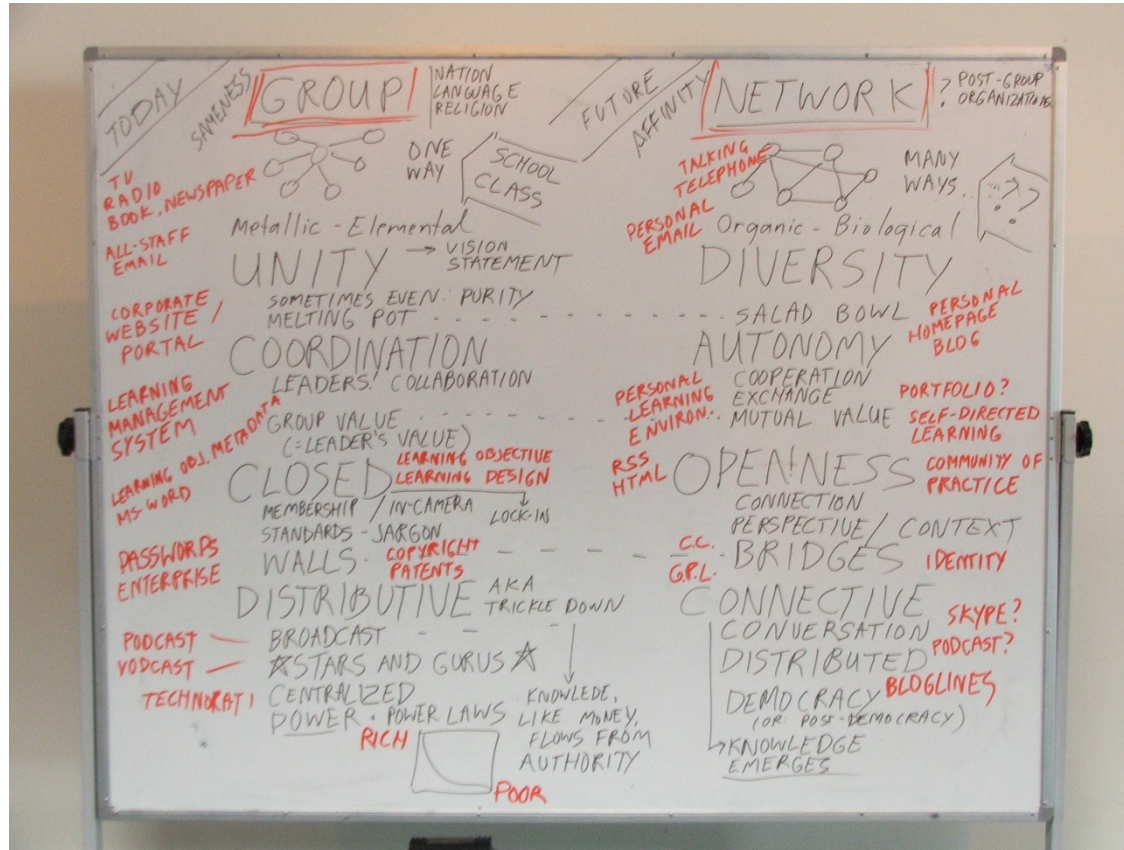 TODAY
SAMENESS
GROUP
NATION
LANGUAGE
RELIGION
ONE
WAY
SCHOOL
CLASS
TV
RADIO
BOOK, NEWSPAPER
ALL-STAFF
EMAIL
Metallic - Elemental
UNITY
→ VISION
STATEMENT
SOMETIMES EVEN: PURITY
MELTING POT
CORPORATE
WEBSITE /
PORTAL
COORDINATION
LEADERS! COLLABORATION
LEARNING
MANAGEMENT
SYSTEM
GROUP VALUE
(=LEADER'S VALUE)
LEARNING OBJ. METADATA
MS WORD
CLOSED
LEARNING OBJECTIVE
LEARNING DESIGN
MEMBERSHIP / IN-CAMERA
LOCK-IN
STANDARDS - JARGON
WALLS
COPYRIGHT
PATENTS
PASSWORDS
ENTERPRISE
DISTRIBUTIVE
AKA
TRICKLE DOWN
PODCAST
VODCAST
TECHNORATI
BROADCAST
☆STARS AND GURUS☆
CENTRALIZED
POWER · POWER LAWS
RICH
POOR
KNOWLEDE,
LIKE MONEY,
FLOWS FROM
AUTHORITY
FUTURE
AFFINITY
NETWORK
? POST-GROUP
ORGANIZATIONS
TALKING
TELEPHONE
MANY
WAYS...
? ? ?
PERSONAL
EMAIL
Organic - Biological
DIVERSITY
SALAD BOWL
PERSONAL
HOMEPAGE
BLOG
AUTONOMY
COOPERATION
EXCHANGE
MUTUAL VALUE
PERSONAL
LEARNING
ENVIRON.
PORTFOLIO?
SELF-DIRECTED
LEARNING
RSS
HTML
OPENNESS
COMMUNITY OF
PRACTICE
CONNECTION
PERSPECTIVE / CONTEXT
C.C.
G.P.L.
BRIDGES
IDENTITY
CONNECTIVE
CONVERSATION
SKYPE?
PODCAST?
DISTRIBUTED
BLOGLINES
DEMOCRACY
(OR: POST-DEMOCRACY)
→KNOWLEDGE
EMERGES